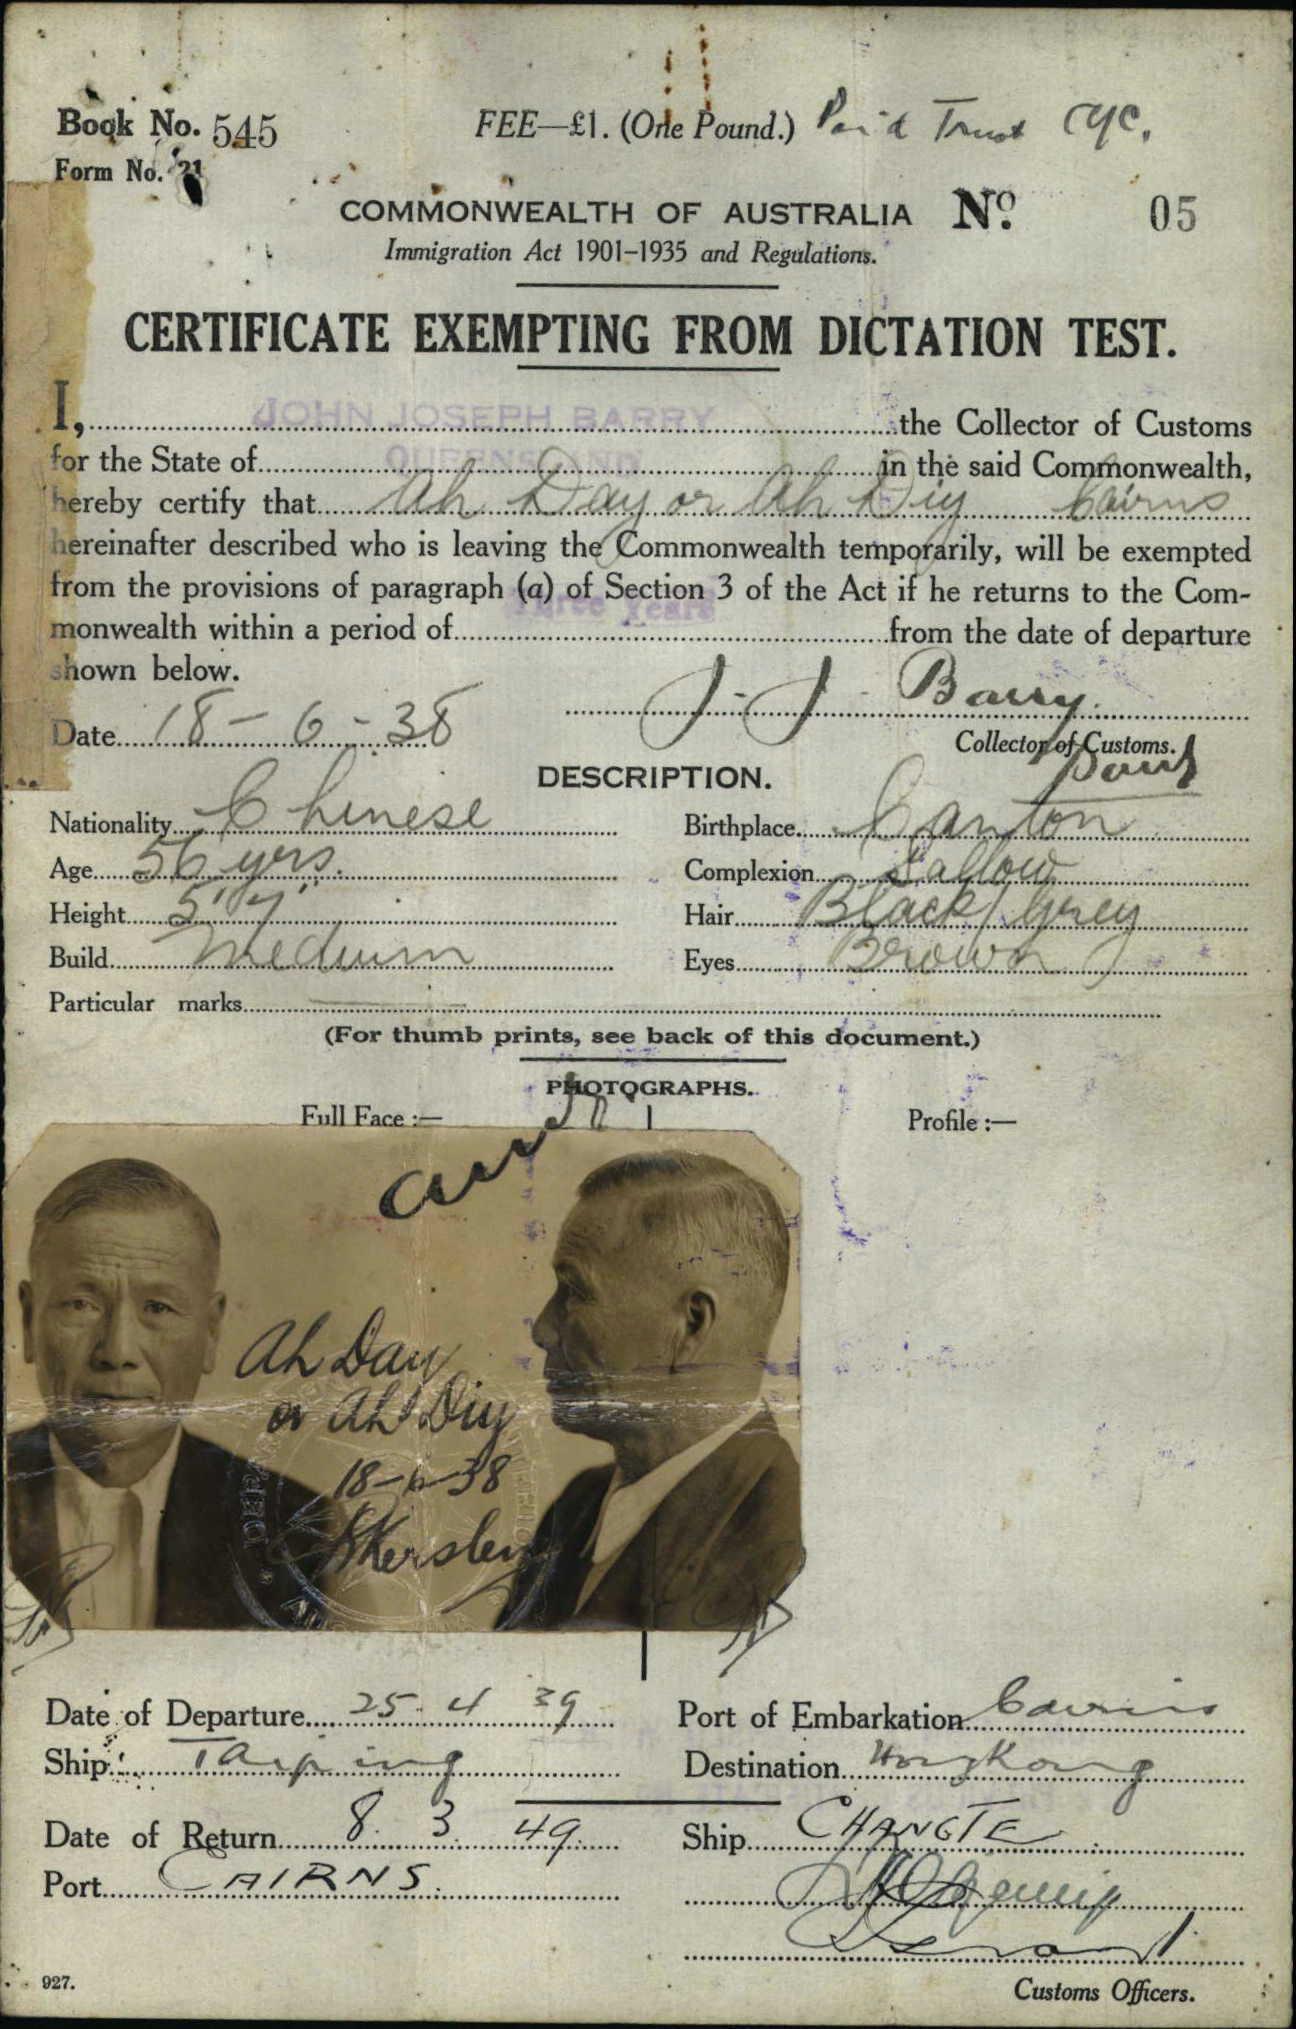 Book No. 545 FEE—£1. (One Pound.) Paid Trust
Form No. 21
COMMONWEALTH OF AUSTRALIA No. 05
Immigration Act 1901-1935 and Regulations.
CERTIFICATE EXEMPTING FROM DICTATION TEST.
I, JOHN JOSEPH BARRY the Collector of Customs
for the State of QUEENSLAND in the said Commonwealth,
hereby certify that Ah Day or Ah Diy Cairns
hereinafter described who is leaving the Commonwealth temporarily, will be exempted
from the provisions of paragraph (a) of Section 3 of the Act if he returns to the Com-
monwealth within a period of Three Years from the date of departure
shown below.
J. J. Barry.
Date 18-6-38
Collector of Customs.
DESCRIPTION.
Nationality Chinese Birthplace Canton
Age 56 yrs. Complexion Sallow
Height 5' 7" Hair Black/Grey
Build Medium Eyes Brown
Particular marks
(For thumb prints, see back of this document.)
PHOTOGRAPHS.
Full Face :— Profile :—
Ah Day
or Ah Diy
18-6-38
Date of Departure 25. 4 39 Port of Embarkation Cairns
Ship Taiping Destination HongKong
Date of Return 8. 3. 49. Ship CHANGTE
Port CAIRNS.
927. Customs Officers.